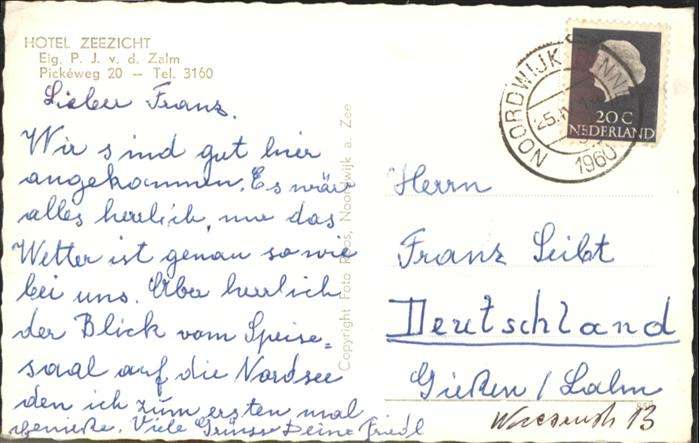 HOTEL ZEEZICHT
Eig. P. J. v. d. Zalm
Pickéweg 20 — Tel. 3160
Lieber Franz.
Wir sind gut hier
angekommen. Es wäre
alles herrlich, nur das
Wetter ist genau so wie
bei uns. Aber herrlich
der Blick vom Speise=
saal auf die Nordsee
den ich zum ersten mal
genieße. Viele Grüsse Deine Friedl
Copyright Foto Roos, Noordwijk a. Zee
NOORDWIJK BINNEN
1960
20 C
NEDERLAND
Herrn
Franz Seibt
Deutschland
Gießen / Lahn
13